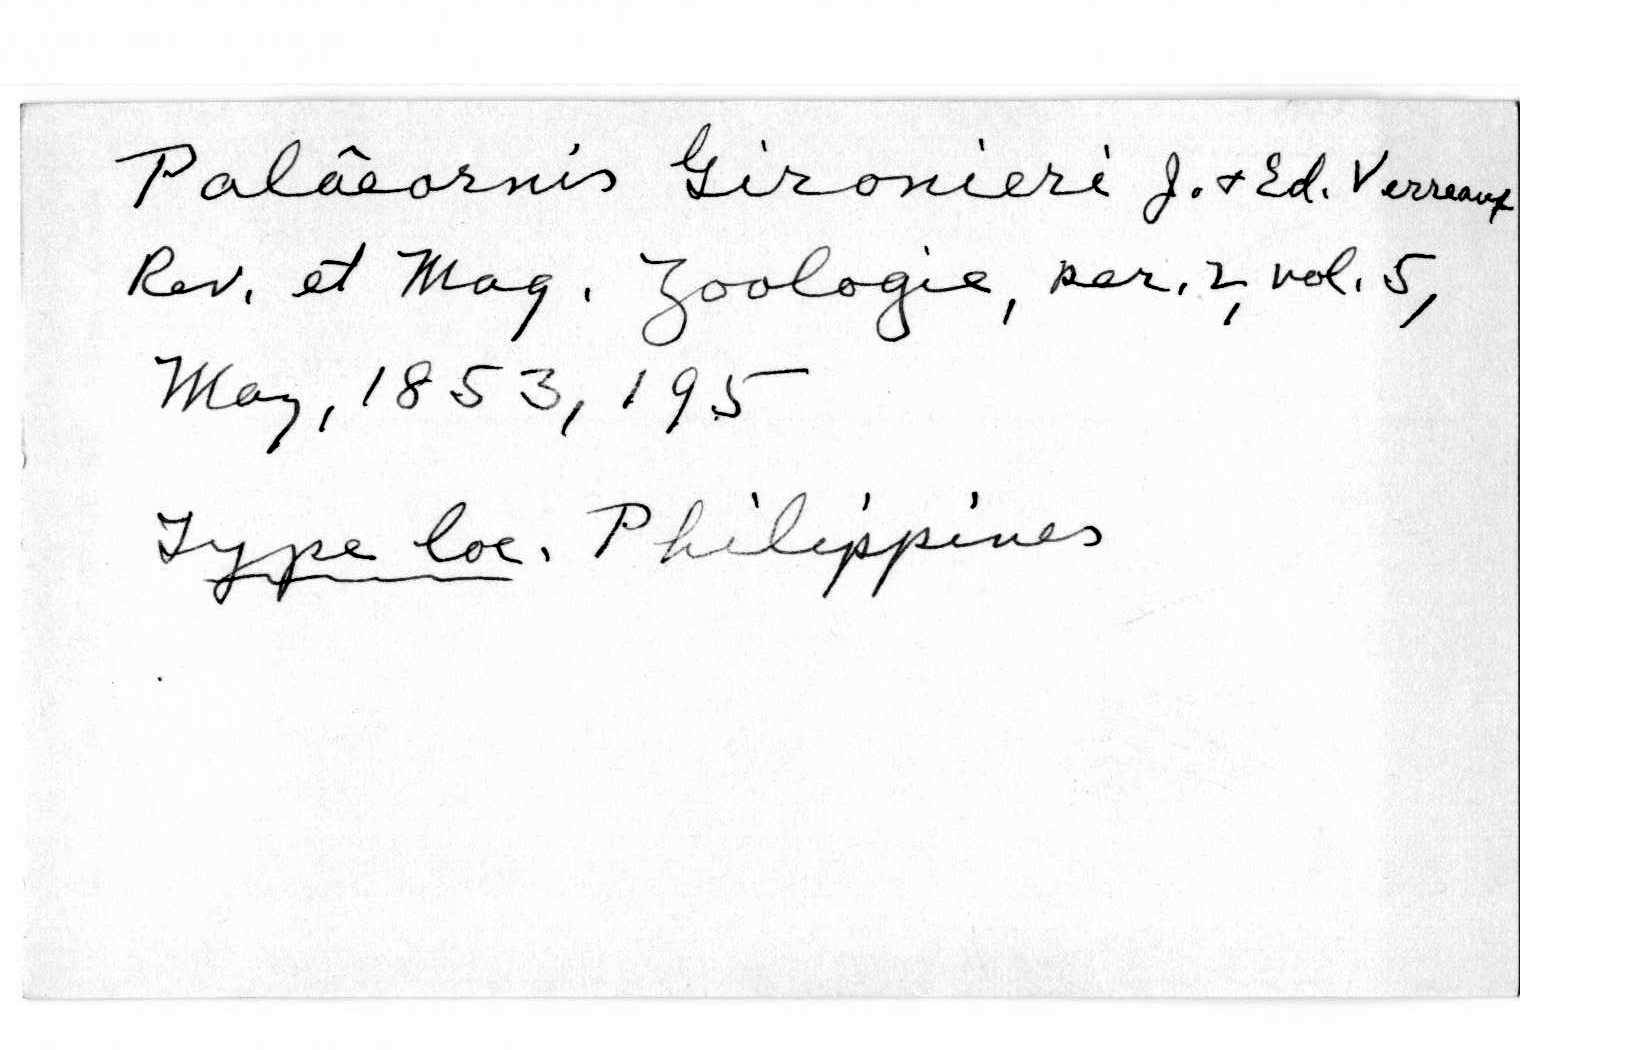 Palâeornis Gironieri J. & Ed. Verreaux
Rev. et Mag. Zoologie, ser. 2, vol. 5,
May, 1853, 195
Type loc. Philippines